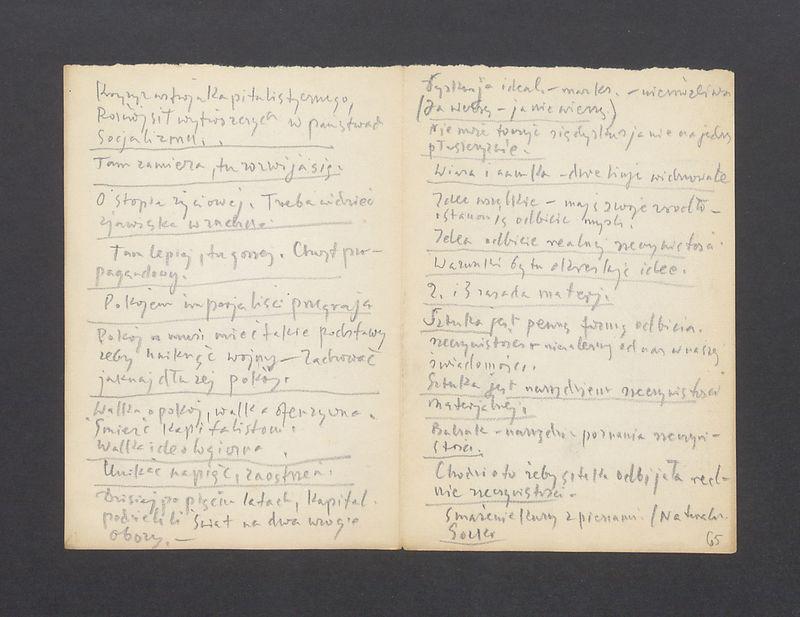 Kryzys ustroju kapitalistycznego,
Rozwój sił wytwórczych w państwach
Socjalizmu.
Tam zamiera, tu rozwija się.
O stopie życiowej. Trzeba widzieć
zjawiska w ruchu.
Tam lepiej, tu gorzej. Chwyt pro-
pagandowy.
Pokojem imperjaliści przegrają
Pokój musi mieć takie podstawy
żeby uniknąć wojny – Zachować
jaknajdłużej pokój.
Walka o pokój, walka ofenzywna.
"Śmierć kapitalistom".
Walka ideologiczna.
Unikać napięć, zaostrzeń.
Dzisiaj po pięciu latach, kapital.
podzielili świat na dwa wrogie
obozy. –
Dyskusja ideal. – marks. – niemożliwa
(Ja wierzę – ja nie wierzę)
Nie może toczyć się dyskusja nie na jednej
płaszczyźnie.
Wiara i nauka – dwie linje
Idee wszelkie – mają swoje źródło –
i stanowią odbicie myśli.
Idea odbicie realnej rzeczywistości.
Warunki bytu określają idee.
2. i 3 zasada materj.
Sztuka jest pewną formą odbicia.
rzeczywistości niezależnej od nas w naszej
świadomości.
Sztuka jest narzędziem rzeczywistości
materjalnej.
narzędzie poznania rzeczywi-
stości.
Chodzi o to żeby sztuka odbijała real-
nie rzeczywistość.
Smażenie kury z piórami. (Natural.
65